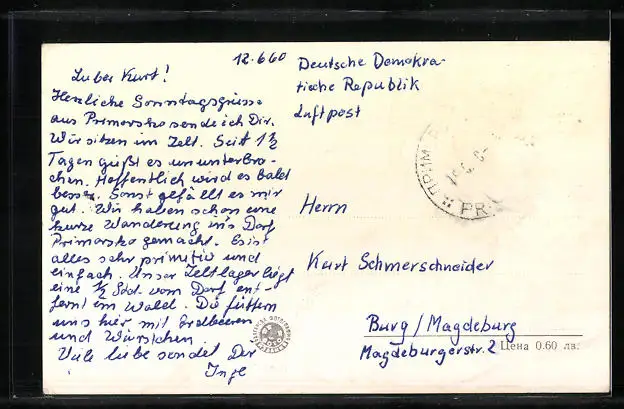 12.6.60
Lieber Kurt!
Herzliche Sonntagsgrüsse
aus Primorsko sende ich Dir.
Wir sitzen im Zelt. Seit 1½
Tagen gießt es ununterbro-
chen. Hoffentlich wird es bald
besser. Sonst gefällt es mir
gut. Wir haben schon eine
kurze Wanderung ins Dorf
Primorsko gemacht. Es ist
alles sehr primitiv und
einfach. Unser Zeltlager liegt
eine ½ Std. vom Dorf ent-
fernt im Wald. Die füttern
uns hier mit Erdbeeren
und Würstchen.
Viele liebe sendet Dir
Inge
Deutsche Demokra-
tische Republik
Luftpost
Herrn
Kurt Schmerschneider
Burg/Magdeburg
Magdeburgerstr. 2
Цена 0.60 лв.
ПРИМ
PR